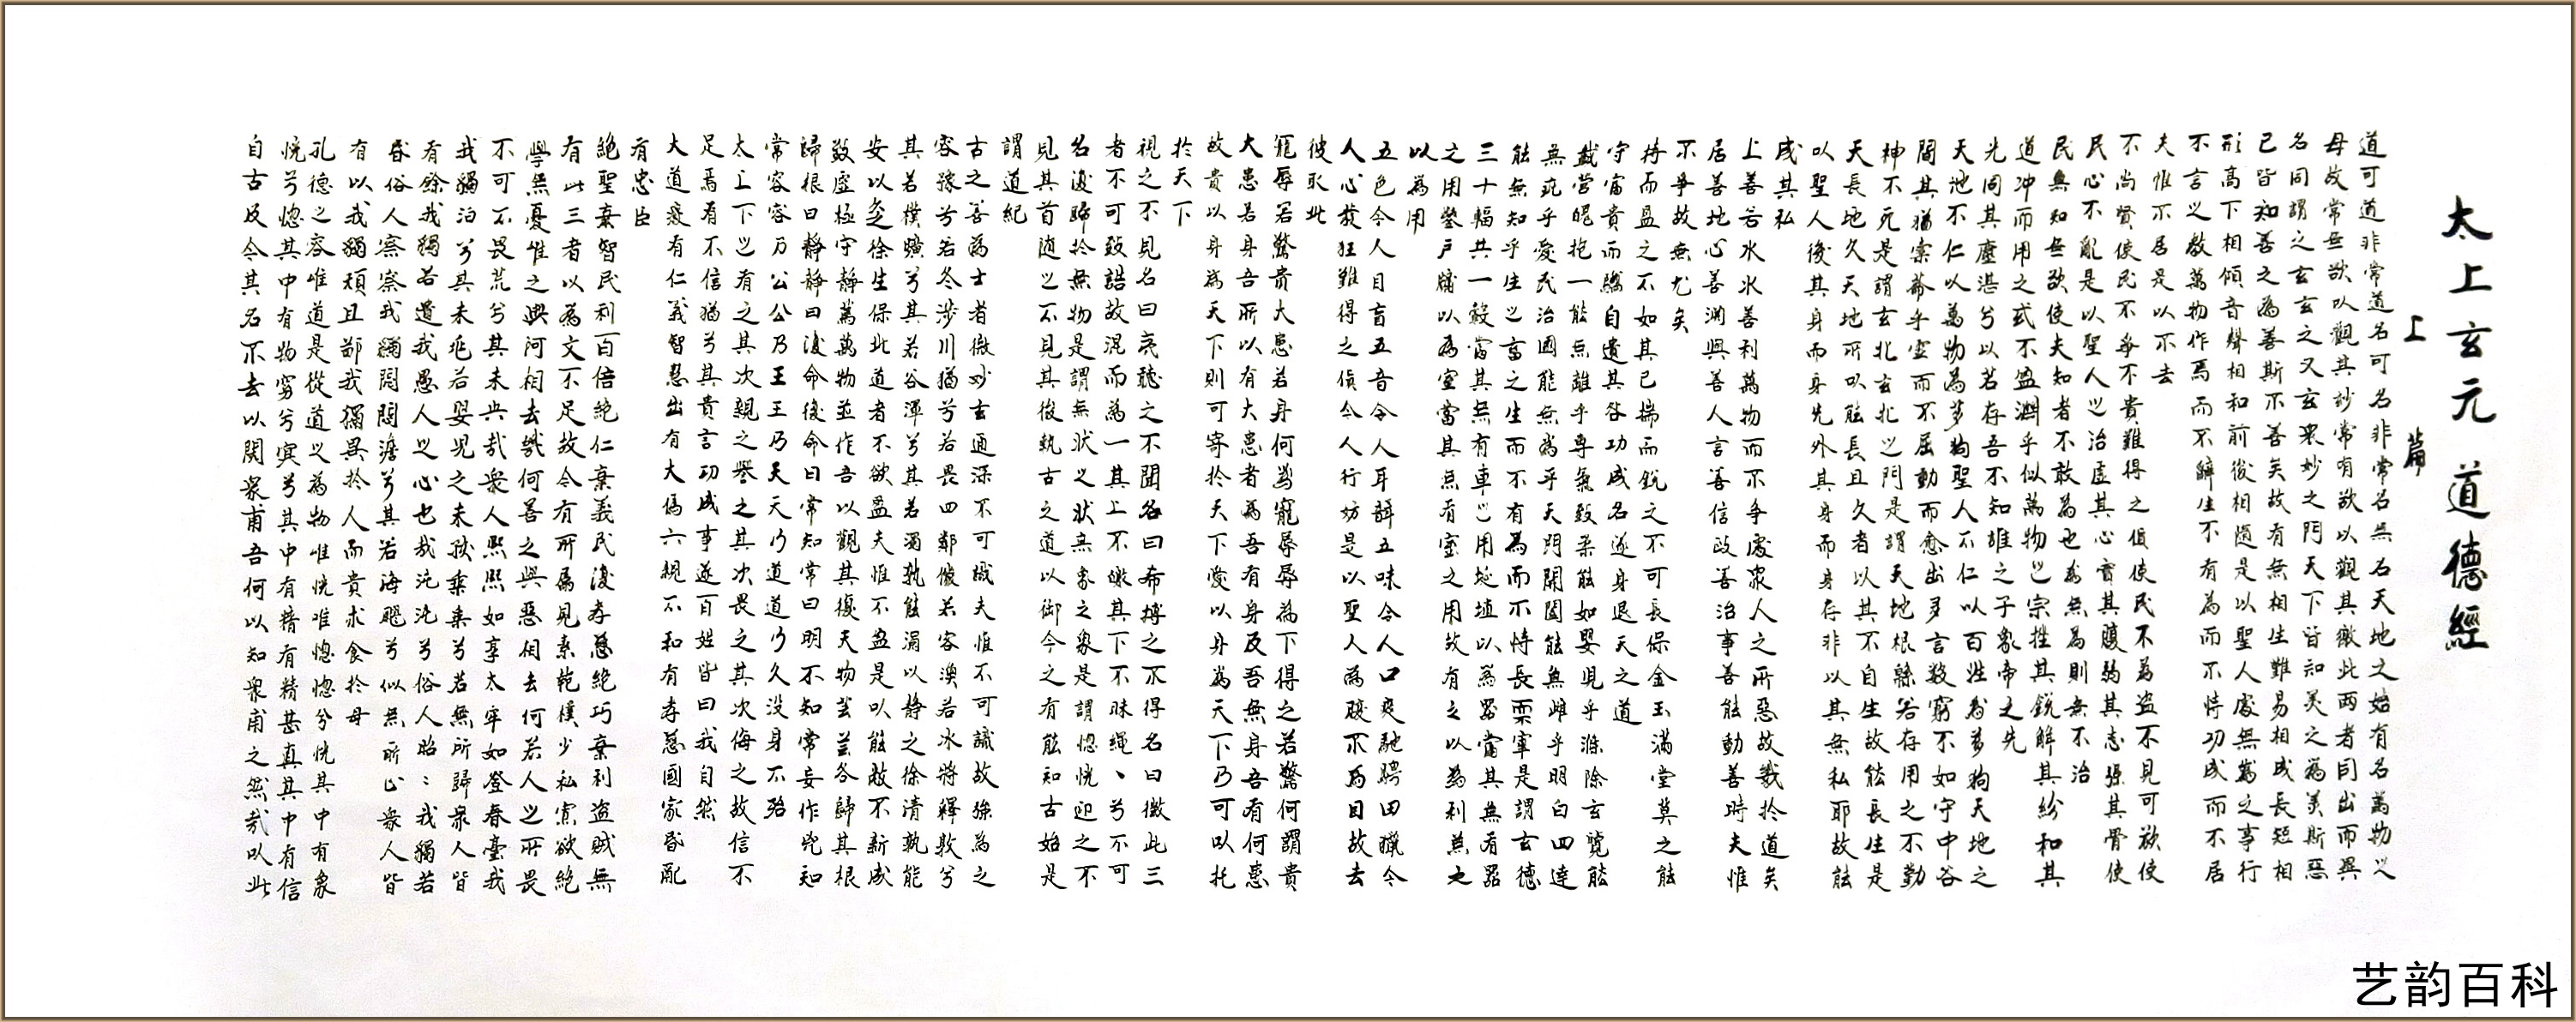 太上玄元道德經
上篇
道可道非常道名可名非常名無名天地之始有名萬物之
母故常無欲以觀其妙常有欲以觀其徼此兩者同出而異
名同謂之玄玄之又玄眾妙之門天下皆知美之為美斯惡
已皆知善之為善斯不善矣故有無相生難易相成長短相
形高下相傾音聲相和前後相隨是以聖人處無為之事行
不言之教萬物作焉而不辭生不有為而不恃功成而不居
夫惟不居是以不去
不尚賢使民不爭不貴難得之貨使民不為盜不見可欲使
民心不亂是以聖人之治虛其心實其腹弱其志強其骨使
民無知無欲使夫知者不敢為也為無為則無不治
道沖而用之或不盈淵乎似萬物之宗挫其銳解其紛和其
光同其塵湛兮以若存吾不知誰之子象帝之先
天地不仁以萬物為芻狗聖人不仁以百姓為芻狗天地之
間其猶橐籥乎虛而不屈動而愈出多言數窮不如守中谷
神不死是謂玄牝玄牝之門是謂天地根綿若存用之不勤
天長地久天地所以能長且久者以其不自生故能長生是
以聖人後其身而身先外其身而身存非以其無私耶故能
成其私
上善若水水善利萬物而不爭處眾人之所惡故幾於道矣
居善地心善淵與善人言善信政善治事善能動善時夫惟
不爭故無尤矣
持而盈之不如其已揣而銳之不可長保金玉滿堂莫之能
守富貴而驕自遺其咎功成名遂身退天之道
載營魄抱一能無離乎專氣致柔能如嬰兒乎滌除玄覽能
無疵乎愛民治國能無為乎天門開闔能無雌乎明白四達
能無知乎生之畜之生而不有為而不恃長而不宰是謂玄德
三十輻共一轂當其無有車之用埏埴以為器當其無有器
之用鑿戶牖以為室當其無有室之用故有之以為利無之
以為用
五色令人目盲五音令人耳聾五味令人口爽馳騁田獵令
人心發狂難得之貨令人行妨是以聖人為腹不為目故去
彼取此
寵辱若驚貴大患若身何為寵辱辱為下得之若驚何謂貴
大患若身吾所以有大患者為吾有身及吾無身吾有何患
故貴以身為天下則可寄於天下愛以身為天下乃可以托
於天下
視之不見名曰夷聽之不聞名曰希搏之不得名曰微此三
者不可致詰故混而為一其上不皦其下不昧繩丶兮不可
名復歸於無物是謂無狀之狀無象之象是謂惚恍迎之不
見其首隨之不見其後執古之道以御今之有能知古始是
謂道紀
古之善為士者微妙玄通深不可識夫惟不可識故強為之
容豫兮若冬涉川猶兮若畏四鄰儼若客渙若冰將釋敦兮
其若樸曠兮其若谷渾兮其若濁孰能濁以靜之徐清孰能
安以久之徐生保此道者不欲盈夫惟不盈是以能敝不新成
致虛極守靜篤萬物並作吾以觀其復天物芸芸各歸其根
歸根曰靜靜曰復命復命曰常知常曰明不知常妄作凶知
常容容乃公公乃王王乃天天乃道道乃久沒身不殆
太上下之有之其次親之譽之其次畏之其次侮之故信不
足焉有不信猶兮其貴言功成事遂百姓皆曰我自然
大道廢有仁義智慧出有大偽六親不和有孝慈國家昏亂
有忠臣
絕聖棄智民利百倍絕仁棄義民復孝慈絕巧棄利盜賊無
有此三者以為文不足故令有所屬見素抱樸少私寡欲絕
學無憂惟之與阿相去幾何善之與惡相去何若人之所畏
不可不畏荒兮其未央哉眾人熙熙如享太牢如登春臺我
我獨泊兮其未兆若嬰兒之未孩乘乘兮若無所歸眾人皆
有餘我獨若遺我愚人之心也哉沌沌兮俗人昭〻我獨若
昏俗人察察我獨悶悶澹兮其若海飂兮似無所止眾人皆
有以我獨頑且鄙我獨異於人而貴求食於母
孔德之容唯道是從道之為物唯恍唯惚惚兮恍其中有象
恍兮惚其中有物窈兮冥兮其中有精有精甚真其中有信
自古及今其名不去以閱眾甫吾何以知眾甫之然哉以此
艺韵百科